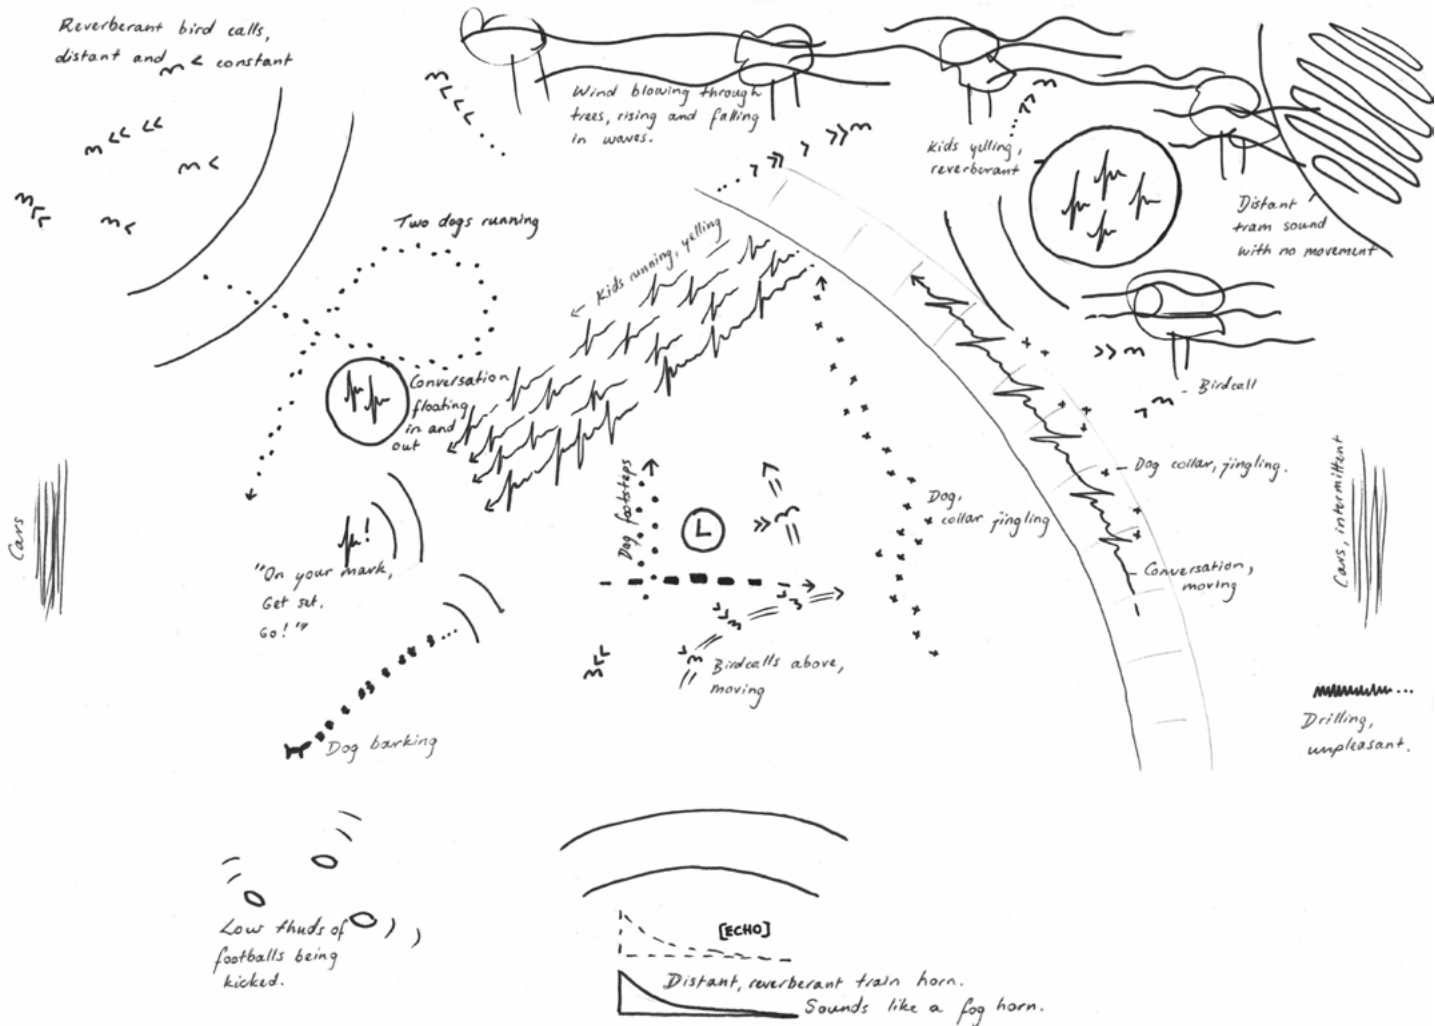 Reverberant bird calls,
distant and constant
Wind blowing through
trees, rising and falling
in waves.
Kids yelling,
reverberant
Distant
tram sound
with no movement
Two dogs running
Kids running, yelling
Conversation
floating
in and
out
Birdcall
Dog collar, jingling.
Dog,
collar jingling
Dog footsteps
L
Cars
Cars, intermittent
"On your mark,
Get set,
Go!"
Conversation,
moving
Birdcalls above,
moving
Drilling,
unpleasant.
Dog barking
Low thuds of
footballs being
kicked.
[ECHO]
Distant, reverberant train horn.
Sounds like a fog horn.